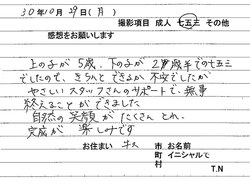 30年10月29日(月)
撮影項目 成人 七五三 その他
感想をお願いします
上の子が5歳、下の子が2歳半での七五三
でしたので、きちんとできるか不安でしたが
やさしいスタッフさんのサポートで、無事
終えることができました
自然の笑顔がたくさんとれ、
完成が楽しみです
お住まい 市 お名前
町 イニシャルで
村 T.N